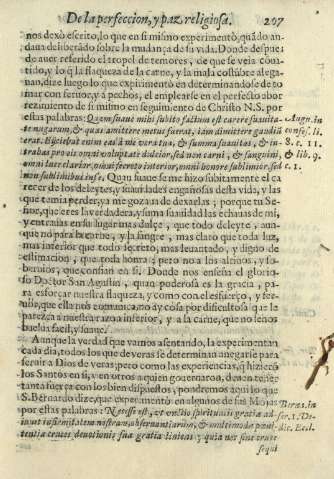 De la perfeccion, y paz religiosa. 207
nos dexò escrito, lo que en si mismo experimentò, quãdo an-
daua deliberãdo sobre la mudança de su vida. Donde despues
de auer referido el tropel de temores, de que se veia cõba-
tido, y lo q̃ la flaqueza de la carne, y la mala costũbre alega-
uan, dize luego lo que experimentò en determinandose de to-
mar con feruor, y à pechos, el emplearse en el perfecto abor-
rezimiento de si mismo en seguimiento de Christo N.S. por
estas palabras: Quam suaue mihi subito factum est carere suauita-
te nugarum, & quas amittere metus fuerat, iam dimittere gaudiũ
erat. Eijciebat enim eas à me vera tu, & summa suauitas, & in-
trabas pro eis omni voluptate dulcior, sed non carni, & sanguini,
omni luce clarior, omni secreto interior, omni honore sublimior, sed
non sublimibus in se. Quan suaue se me hizo subitamente el ca
recer de los deleytes, y suauidades engañosas desta vida, y las
que temia perder, ya me gozaua de dexarlas; porque tu Se-
ñor, que eres la verdadera, y suma suauidad las echauas de mi,
y entrauas en su lugar mas dulçe, que todo deleyte, aun-
que no para la carne, y la sangre, mas claro que toda luz,
mas interior que todo secreto, mas leuantado, y digno de
estimacion, que toda honra; pero no à los altiuos, y so-
beruios, que confian en si. Donde nos enseña el glorio-
so Doctor San Agustin, quan poderosa es la gracia, pa-
ra esforçar nuestra flaqueza, y como con el esfuerço, y fer-
uor, que ella nos comunica, no ay cosa por dificultosa que le
parezca à nuestra razon inferior, y à la carne, que no se nos
buelua facil, y suaue.
Aunque la verdad que vamos assentando, la experimentan
cada dia, todos los que de veras se determinan à negarse para
seruir à Dios de veras; pero como las experiencias, q̃ hizierõ
los Santos en si, y en otros à quien gouernaron, deuen tener
tanta fuerça con los bien dispuestos, pondremos aqui lo que
S. Bernardo dize, que experimentò en algunos de sus Monjes
por estas palabras: Necesse est, vt vnctio spiritualis gratiæ ad-
iuuet infirmitatem nostram, obseruantiarum, & multimodæ pœni-
tentiæ cruces deuotionis suæ gratia liniens; quia nec sine cruce
sequi
Aug. in
confes. li.
8. c. 11.
& lib. 9.
c. 1.
Bern. in
ser. 1. De-
dic. Eccl.